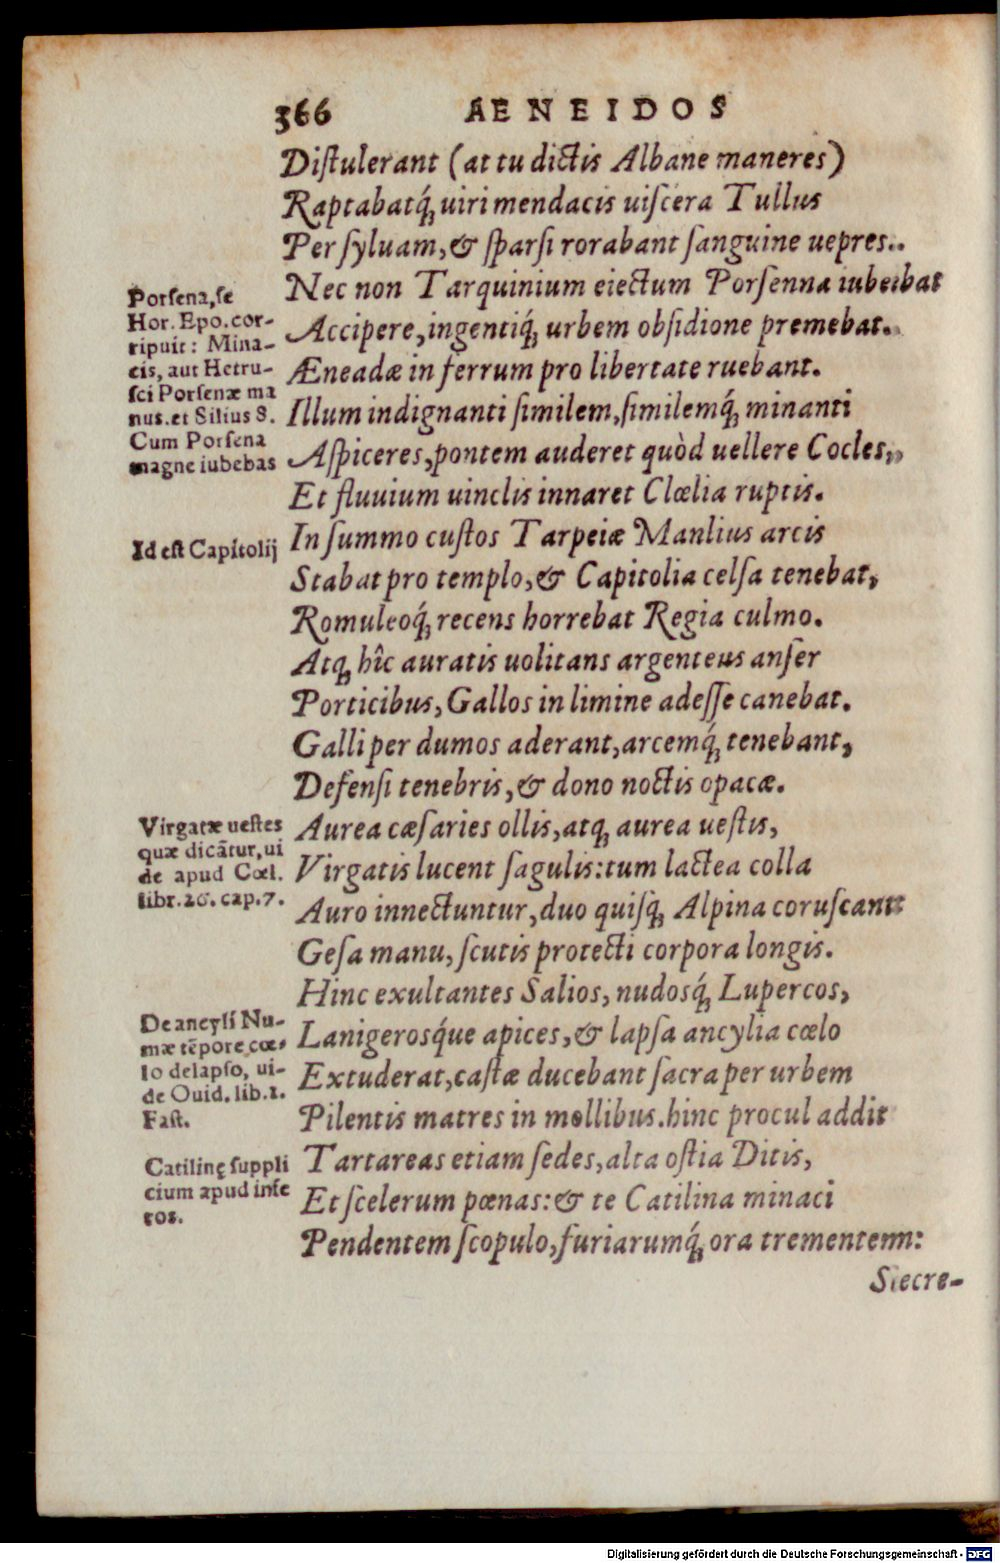 366 AENEIDOS
Diſtulerant (at tu dictis Albane maneres)
Raptabatq́ꝫ uiri mendacis uiſcera Tullus
Per ſyluam, & ſparſi rorabant ſanguine uepres.
Nec non Tarquinium eiectum Porſenna iubebat
Accipere, ingentiq́ꝫ urbem obſidione premebat.
Æneadæ in ferrum pro libertate ruebant.
Illum indignanti ſimilem, ſimilemq́ꝫ minanti
Aſpiceres, pontem auderet quòd uellere Cocles,
Et fluuium uinclis innaret Clœlia ruptis.
In ſummo cuſtos Tarpeiæ Manlius arcis
Stabat pro templo, & Capitolia celſa tenebat,
Romuleoq́ꝫ recens horrebat Regia culmo.
Atqꝫ hîc auratis uolitans argenteus anſer
Porticibus, Gallos in limine adeſſe canebat.
Galli per dumos aderant, arcemq́ꝫ tenebant,
Defenſi tenebris, & dono noctis opacæ.
Aurea cæſaries ollis, atqꝫ aurea ueſtis,
Virgatis lucent ſagulis: tum lactea colla
Auro innectuntur, duo quiſqꝫ Alpina coruſcant
Geſa manu, ſcutis protecti corpora longis.
Hinc exultantes Salios, nudosq́ꝫ Lupercos,
Lanigerosq́ue apices, & lapſa ancylia cœlo
Extuderat, caſtæ ducebant ſacra per urbem
Pilentis matres in mollibus. hinc procul addit
Tartareas etiam ſedes, alta oſtia Ditis,
Et ſcelerum pœnas: & te Catilina minaci
Pendentem ſcopulo, furiarumq́ꝫ ora trementem:
Secre-
Porſena, ſe
Hor. Epo. cor-
ripuit: Mina-
cis, aut Hetru-
ſci Porſenæ ma
nus. et Silius 8.
Cum Porſena
magne iubebas
Id eſt Capitolij
Virgatæ ueſtes
quæ dicãtur, ui
de apud Cœl.
libr. 26. cap. 7.
De ancyli Nu-
mæ tẽpore cœ-
lo delapſo, ui-
de Ouid. lib. 1.
Faſt.
Catilinę ſuppli
cium apud infe
ros.
Digitalisierung gefördert durch die Deutsche Forschungsgemeinschaft - DFG